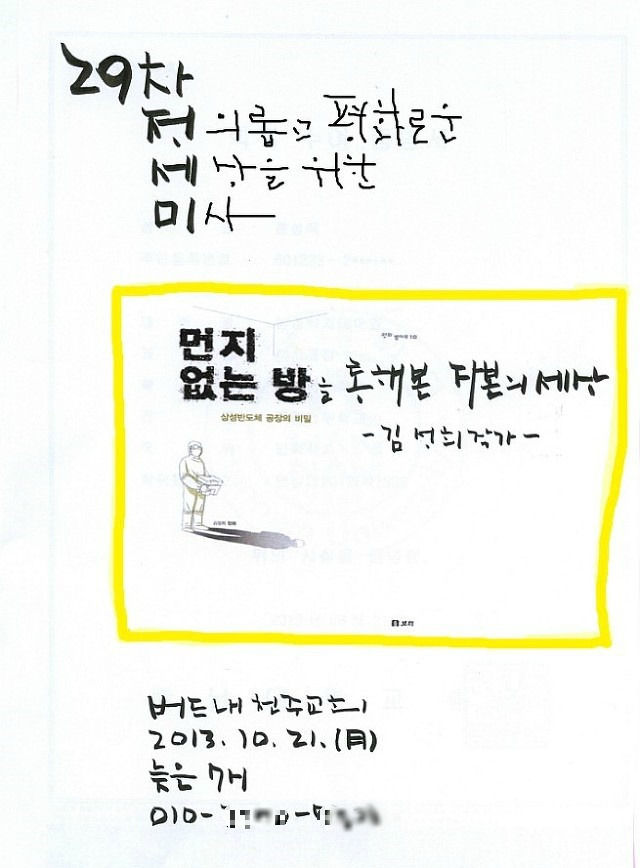 29차
정의롭고 평화로운
세상을 위한
미사
먼지
없는 방을 통해본 자본의 세상
삼성반도체 공장의 비밀
-김성희 작가-
김성희 만화
보리
버드내 천주교회
2013. 10. 21. (月)
늦은 7시
010-